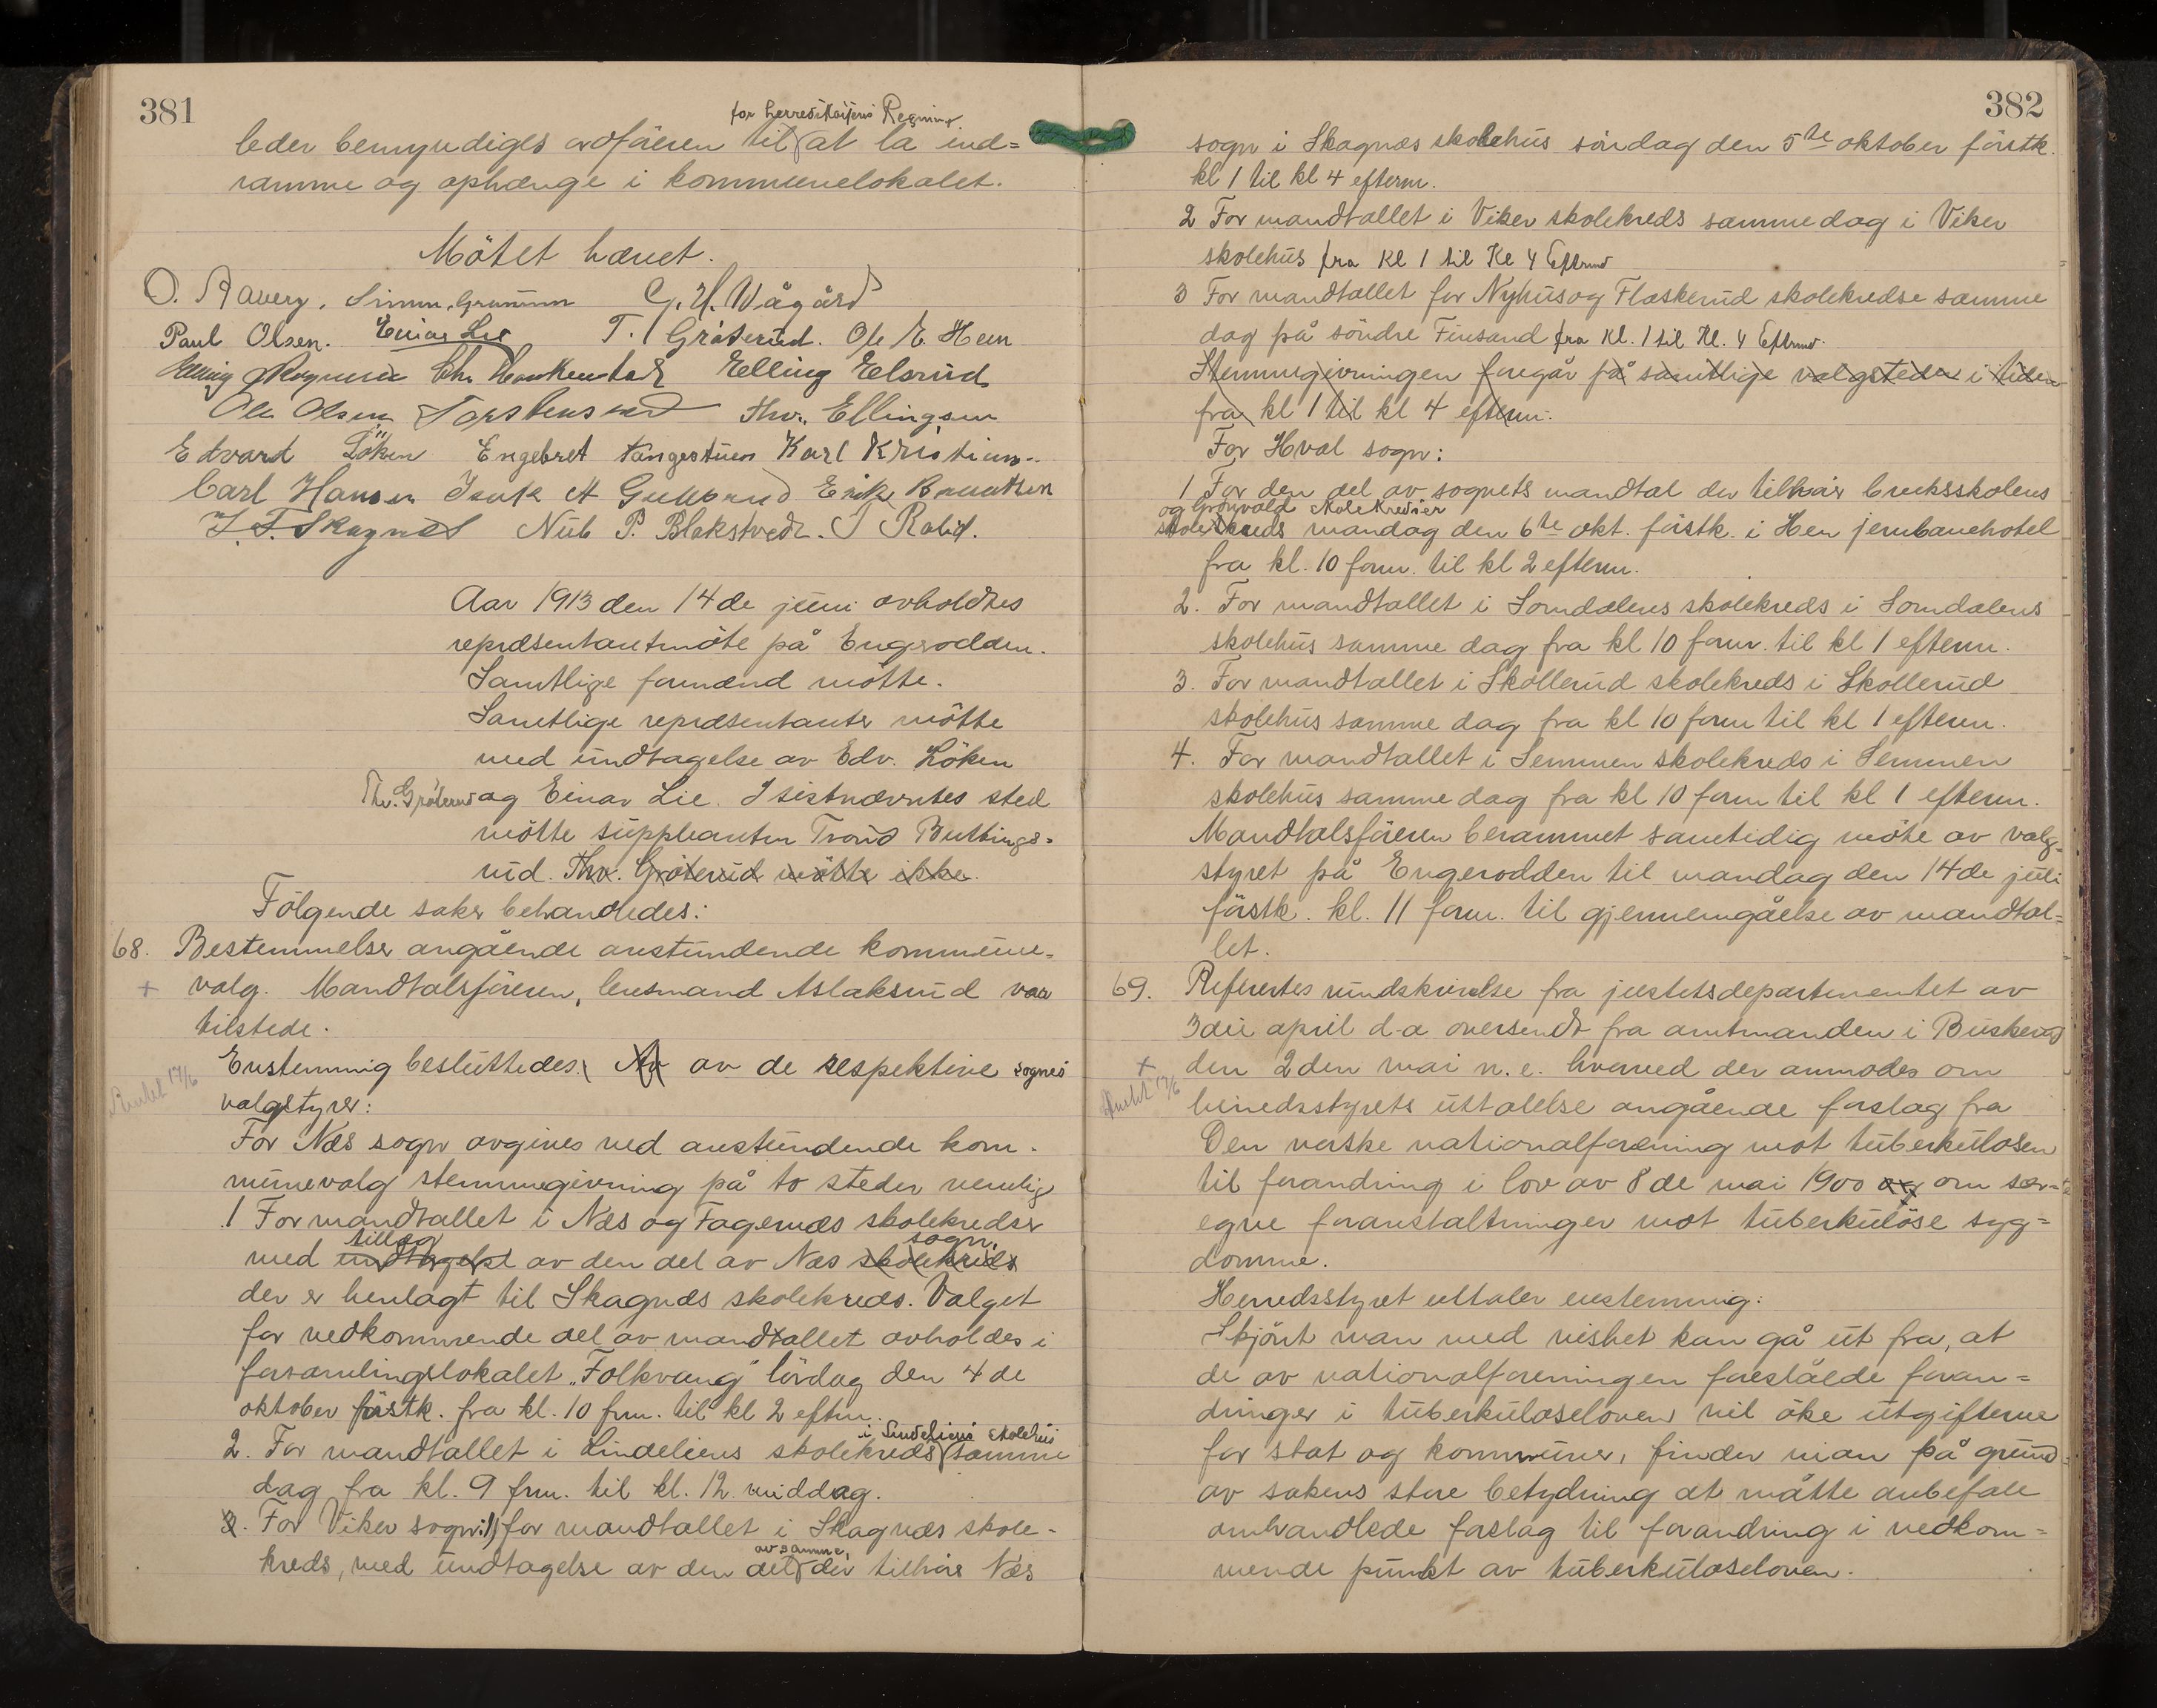 381
for herredskassens Regning.
leder bemyndiges ordføreren til at la ind=
ramme og ophænge i kommunelokalet.
Møtet hævet.
O. Aavery. Simen Granum G. H. Vågård
Paul Olsen. Einar Lie T. Gråterud. Ole E. Hem
Elling Skagnæs Chr. Elling Elsrud
Ole Olsen Thv. Ellingsen
Edvard Löken Engebret Tangestuen Karl Kristians..
Carl Hansen Isak A Gulbrud Erik Knutsen
J. T. Skagnæs Nub P. Blakstvedt. J Robid.
Aar 1913 den 14de juni avholdtes
repræsentantmöte på Engerodden.
Samtlige formænd mötte.
Samtlige repræsentanter mötte
med undtagelse av Edv. Löken
Thv. Gråterud og Einar Lie. I sistnævntes sted
mötte suppleanten Trond Buttings=
rud. Thv. Gråterud mötte ikke.
Fölgende saker behandledes:
68. Bestemmelser angående anstundende kommune-
+ valg. Mandtalsföreren, lensmand Aslaksrud var
tilstede.
Enstemmig besluttedes av de respektive sognes
17/6
valgstyrer:
For Næs sogn avgives ved anstundende kom-
munevalg stemmegivning på to steder nemlig
1 For mandtallet i Næs og Fagernæs skolekredser
tillæg sogn.
med undtagelse av den del av Næs skolekreds
der er henlagt til Skagnæs skolekreds. Valget
for vedkommende del av mandtallet avholdes i
forsamlingslokalet „Folkvang" lördag den 4de
oktober förstk. fra kl. 10 frm. til kl 2 eftm.
i Lindeliens skolehus
2. For mandtallet i Lindeliens skolekreds samme
dag fra kl. 9 frm. til kl. 12 middag.
2. For Viker sogn: 1) for mandtallet i Skagnæs skole-
av samme,
kreds, med undtagelse av den del der tilhör Næs
382
sogn i Skagnæs skolehus söndag den 5te oktober förstk.
kl 1 til kl 4 efterm.
2 For mandtallet i Viker skolekreds samme dag i Viker
skolehus fra Kl 1 til Kl 4 Eftmd
3 For mandtallet for Nyhus og Flaskerud skolekredse samme
dag på söndre Finsand fra Kl. 1 til Kl. 4 Eftmd.
Stemmegivningen foregår på samtlige valgsteder i tiden
fra kl 1 til kl 4 efterm.
For Hval sogn:
1 For den del av sognets mandtal der tilhör bruksskolens
og Grönvold skolekredser
skolekreds mandag den 6te okt. förstk. i Hen jernbanehotel
fra kl. 10 form. til kl 2 efterm.
2. For mandtallet i Somdalens skolekreds i Somdalens
skolehus samme dag fra kl 10 form. til kl 1 efterm.
3. For mandtallet i Skollerud skolekreds i Skollerud
skolehus samme dag fra kl 10 form til kl 1 efterm.
4. For mandtallet i Semmen skolekreds i Semmen
skolehus samme dag fra kl 10 form til kl 1 efterm.
Mandtalsföreren berammet samtidig möte av valg=
styret på Engerodden til mandag den 14de juli
förstk. kl. 11 form. til gjennemgåelse av mandtal=
let.
69. Refertes rundskrivelse fra justitsdepartementet av
3die april d.a oversendt fra amtmanden i Buskerud
+ den 2den mai n.e. hvorved der anmodes om
17/6
herredsstyrets uttalelse angående forslag fra
Den norske nationalforening mot tuberkulosen
til forandring i lov av 8de mai 1900 og om sær=
egne foranstaltninger mot tuberkulöse syg=
domme.
Herredsstyret uttaler enstemmig:
Skjönt man med vished kan gå ut fra, at
de av nationalforeningen foreslåede foran=
dringer i tuberkuloseloven vil öke utgifterne
for stat og kommuner, finder man på grund
av sakens store betydning at måtte anbefale
omhandlede forslag til forandring i vedkom=
mende punkt av tuberkuloseloven.